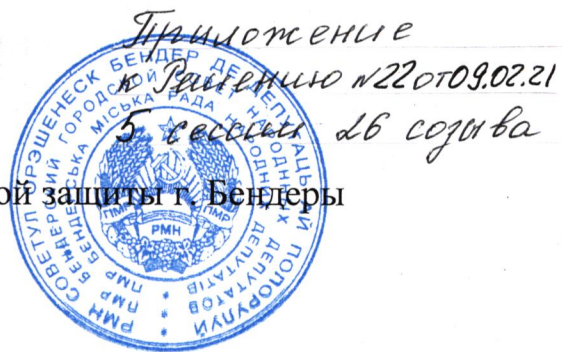 Приложение
к Решению №22 от 09.02.21
5 сессии 26 созыва
ой защиты г. Бендеры
РМН СОВЕТУЛ ОРЭШЕНЕСК БЕНДЕР ДЕ ДЕПУТАЦЬ АЙ ПОПОРУЛУЙ
ПМР БЕНДЕРСКИЙ ГОРОДСКОЙ СОВЕТ НАРОДНЫХ ДЕПУТАТОВ
ПМР БЕНДЕРСЬКА МІСЬКА РАДА НАРОДНИХ ДЕПУТАТІВ
ПМР
ПМР
РМН